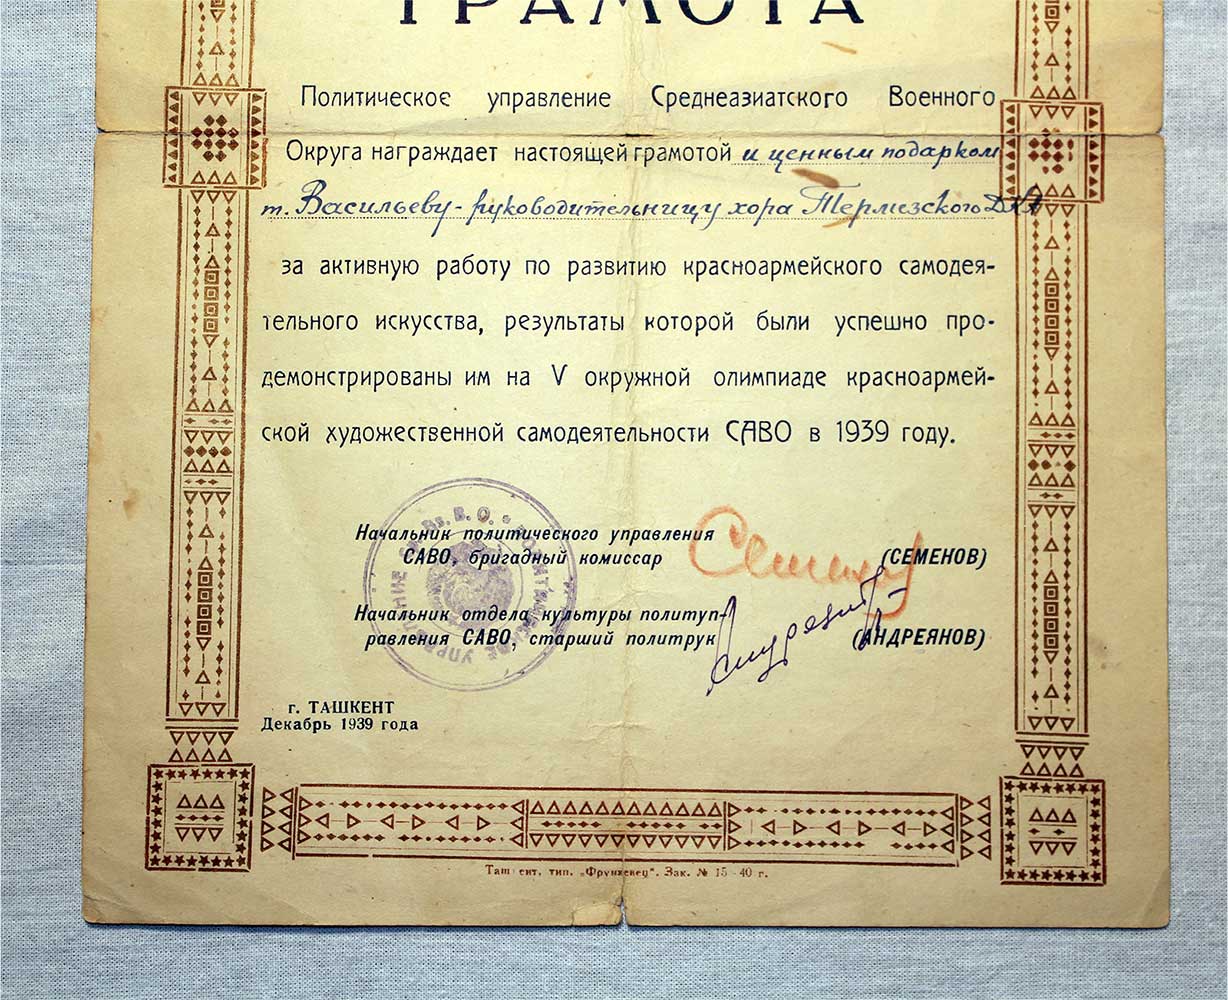 ГРАМОТА
Политическое управление Среднеазиатского Военного
Округа награждает настоящей грамотой и ценным подарком
т. Васильеву - руководительницу хора Термезского ДКА
за активную работу по развитию красноармейского самодея-
тельного искусства, результаты которой были успешно про-
демонстрированы им на V окружной олимпиаде красноармей-
ской художественной самодеятельности САВО в 1939 году.
Начальник политического управления
САВО, бригадный комиссар (СЕМЕНОВ)
Начальник отдела культуры политуп-
равления САВО, старший политрук (АНДРЕЯНОВ)
г. ТАШКЕНТ
Декабрь 1939 года
Ташкент, тип. „Фрунзевец". Зак. № 15 -40 г.